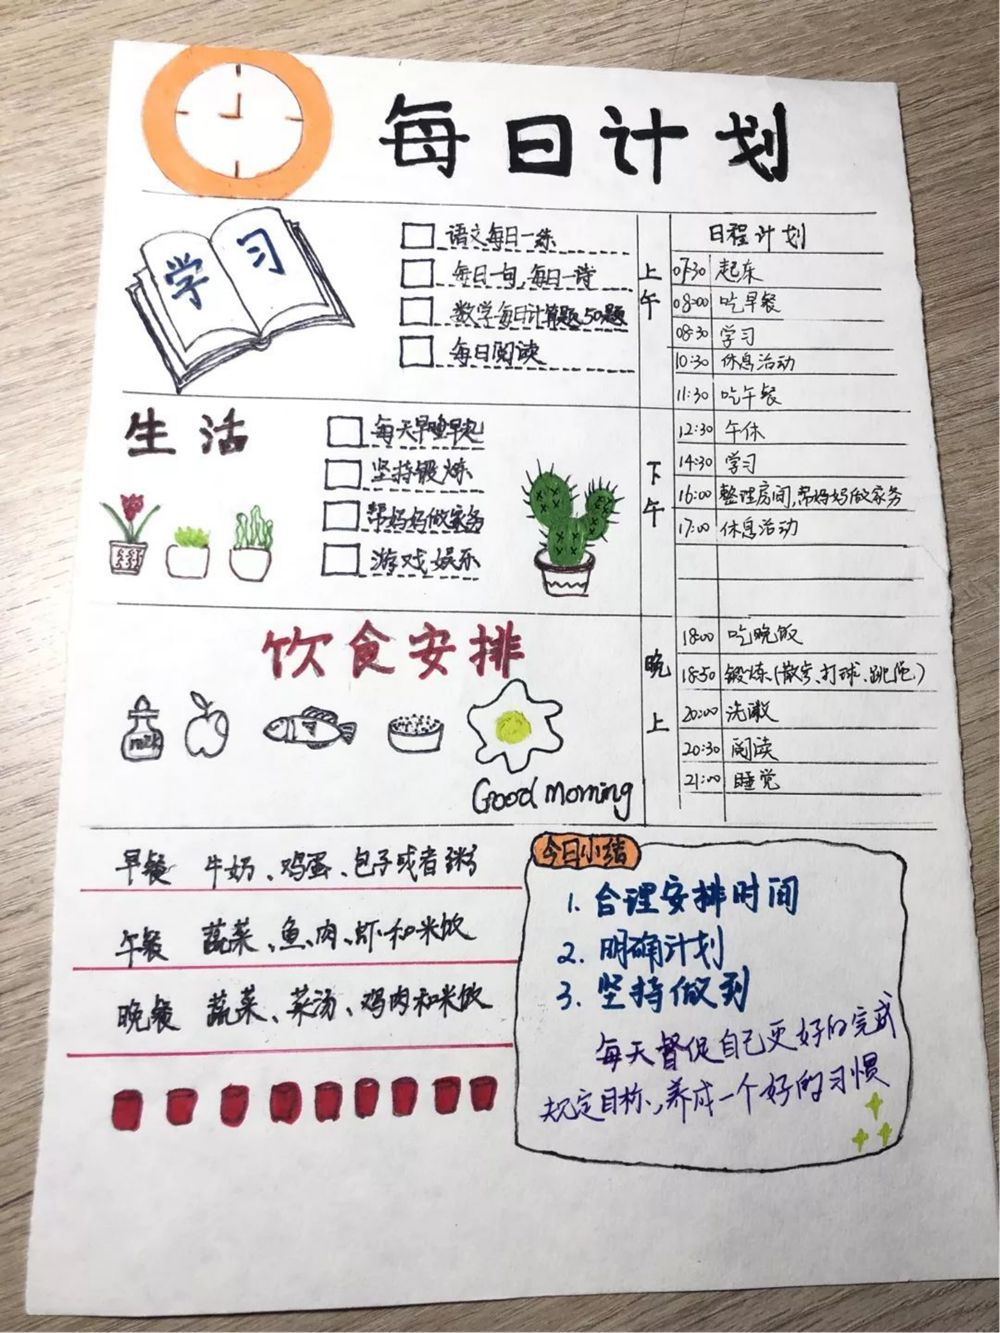 每日计划
学习
语文每日一练
每日一句,每日一诗
数学每日计算题50题
每日阅读
生活
每天早睡早起
坚持锻炼
帮妈妈做家务
游戏娱乐
日程计划
上午
07:30 起床
08:00 吃早餐
08:30 学习
10:30 休息活动
11:30 吃午餐
下午
12:30 午休
14:30 学习
16:00 整理房间,帮妈妈做家务
17:00 休息活动
晚上
18:00 吃晚饭
18:50 锻炼(散步、打球、跳绳)
20:00 洗漱
20:30 阅读
21:00 睡觉
饮食安排
milk
Good morning
早餐 牛奶、鸡蛋、包子或者粥
午餐 蔬菜、鱼、肉、虾和米饭
晚餐 蔬菜、菜汤、鸡肉和米饭
今日小结
1. 合理安排时间
2. 明确计划
3. 坚持做到
每天督促自己更好的完成
规定目标,养成一个好的习惯